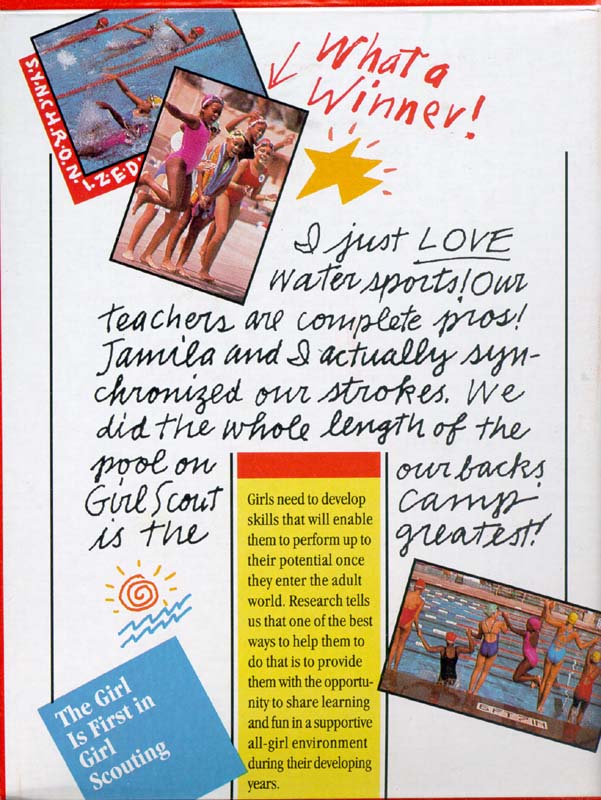 S.Y.N.C.H.R.O.N.
I.Z.E.D.
What a
Winner!
I just LOVE
water sports! Our
teachers are complete pros!
Jamila and I actually syn-
chronized our strokes. We
did the whole length of the
pool on our backs.
Girl Scout camp
is the greatest!
Girls need to develop
skills that will enable
them to perform up to
their potential once
they enter the adult
world. Research tells
us that one of the best
ways to help them to
do that is to provide
them with the opportu-
nity to share learning
and fun in a supportive
all-girl environment
during their developing
years.
The Girl
Is First in
Girl
Scouting